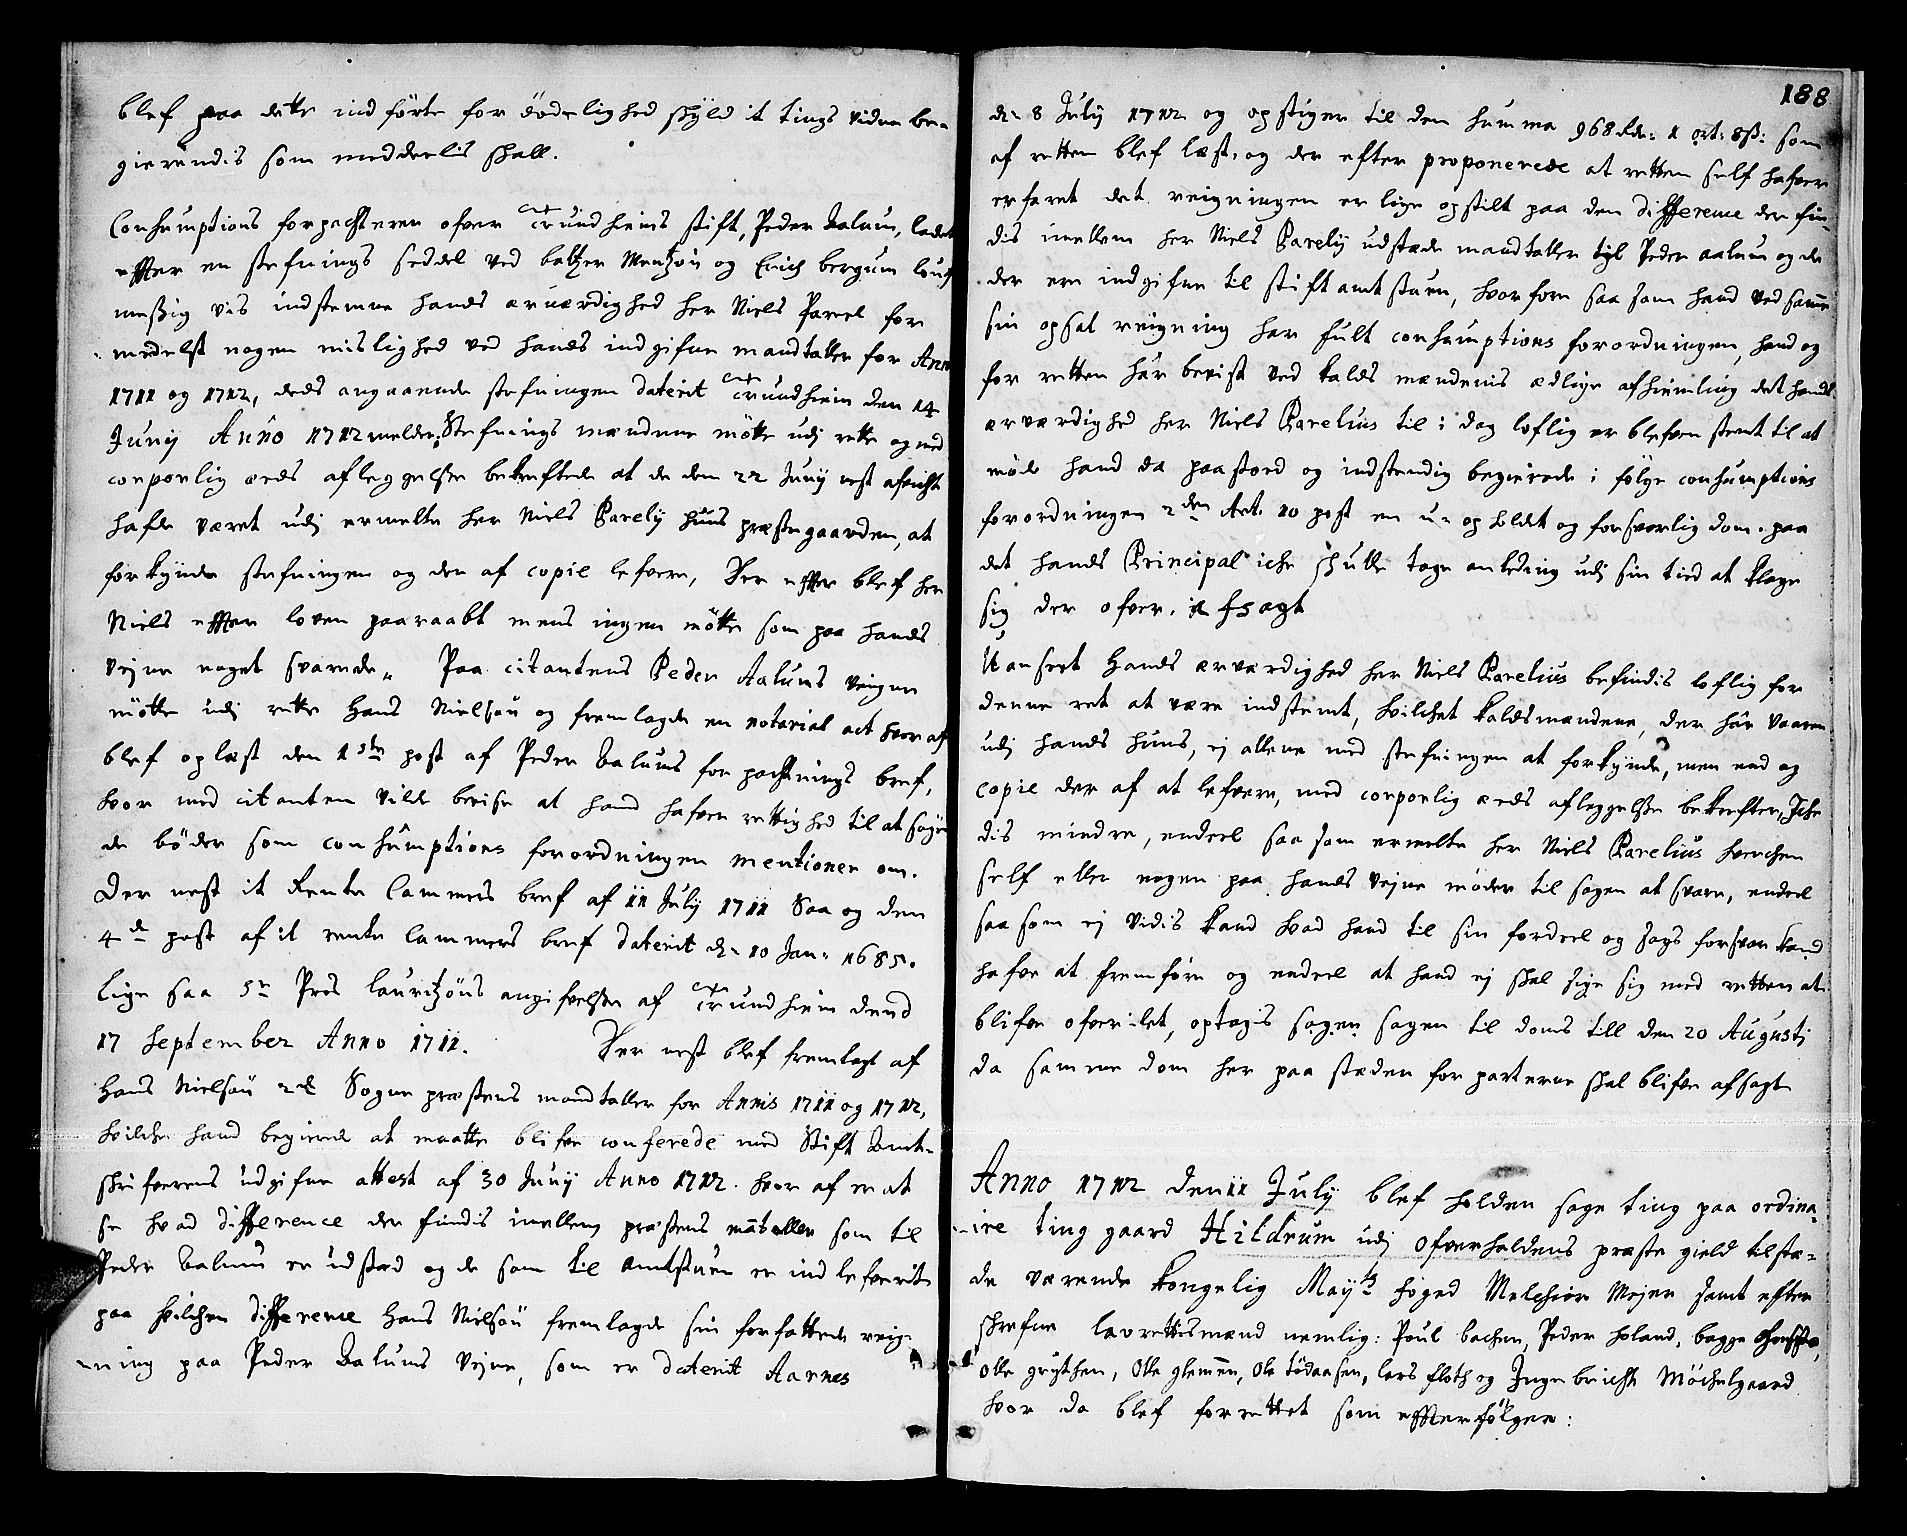 blef paa dette indførte for dødelighed skyld it tings vidne be-
gierendis som meddeelis skall.
Consumptions forpachteren ofver Trundhiems stift, Peder Aalum, ladet
effter en stefnings seddel ved baltzer Mentzøn og Erich bergum louf
meßig vis indstemne hands ærværdighed her Niels Parel for
medelst nogen mislighed ved hands indgifne mandtaller for Anno
1711 og 1712, deds angaaende stefningen daterit Trundhiem den 14
Junij Anno 1712 melder, Stefnings mændene møtte udj rette og med
corporlig eeds afleggelse bekreftede at de den 22 Junij nest afvicht
hafde været udj ermelte her Niels Parelij huus præstegaarden, at
forkynde stefningen og der af copie lefvere, Der effter blef her
Niels effter loven paaraabt mens ingen møtte som paa hands
vejne noget svarede„ Paa citantens Peder Aalums veigne
møtte udj rette Hans Nielsøn og fremlagde en notarial act hvor af
blef oplæst den 1ste post af Peder Aalums forpachtnings bref,
hvor med citanten vilde bevise at hand hafver rettighed til at søge
de bøder som consumptions forordningen mentioner om.
Der nest it Rente Cammers bref af 11 July 1711 Saa og den
4de post af it rente cammers bref daterit d: 10 Jan: 1685.
Lige saa Sr Pros lauritzøns angifvelse af Trundhiem dend
17 September Anno 1711. Der nest blef fremlagt af
Hans Nielsøn 2de Sogne præstens mandtaller for Annis 1711 og 1712,
hvilche hand begierede at maatte blifve conferede med Stift Amt-
skrifverens udgifne attest af 30 Junij Anno 1712. hvor af er at
se hvad difference der findis imellem præstens mandtaller som til
Peder Aalum er udstæd og de som til Amtstuen er indlefverit
paa hvilchen difference Hans Nielsøn fremlagde sin forfattede reig-
ning paa Peder Aalums vejne, som er daterit Aarnes
188
d: 8 July 1712 og opstiger til den summa 968 rdr: 1 ort: 8ß: som
af retten blef læst, og der efter proponerede at retten self hafver
erfaret det reigningen er lige opstilt paa den difference der fin-
dis imellem her Niels Parelij udstæde mandtaller til Peder aalum og de
der ere indgifne til stiftamtstuen, hvorfore saa som hand ved samme
sin opsat reigning har fult consumptions forordningen, hand og
for retten har bevist ved kalds mændenis ædlige afhiemling det hands
ærværdighed her Niels Parelius til i dag loflig er blefven stemt til at
møde hand da paastod og indstendig begierede i følge consumptions
forordningen 2den Art. 10 post en u-opholdt og forsvarlig dom. paa
det hands Principal iche skulle tage anledning udj sin tied at klage
sig der ofver. it fsagt
Uanseet Hands ærværdighed her Niels Parelius befindis loflig for
denne ret at være indstemt, hvilchet kaldsmændene, der har vaaren
udj hands huus, ej allene med stefningen at forkynde, men end og
copie der af at lefvere, med corporlig eeds afleggelse bekrefter, Iche
dis mindre, endeel saa som ermelte her Niels Parelius hverchen
self eller nogen paa hands vejne møder til sagen at svare, endeel
saa som ej vidis kand hvad hand til sin fordeel og sags forsvar kand
hafve at fremføre og endeel at hand ej skal sige sig med retten at
blifve ofverilet, optagis sagen sagen til doms till den 20 Augustj
da samme dom her paa stæden for parterne skal blifve afsagt
Anno 1712 den 11 July blef holden sage ting paa ordina-
ire ting gaard Hildrum udj Ofverhaldens præste gield tilstæ-
de værende kongelig Mayts foged Melchior Mejer samt efter
skrefne laurettismænd nemlig: Poul bachen, Peder holand, bagge
Olle grythen, Olle glemen, Ole tødaasen, lars floth og Ingebricht Møchelgaard
hvor da blef forrettet som effterfølger: